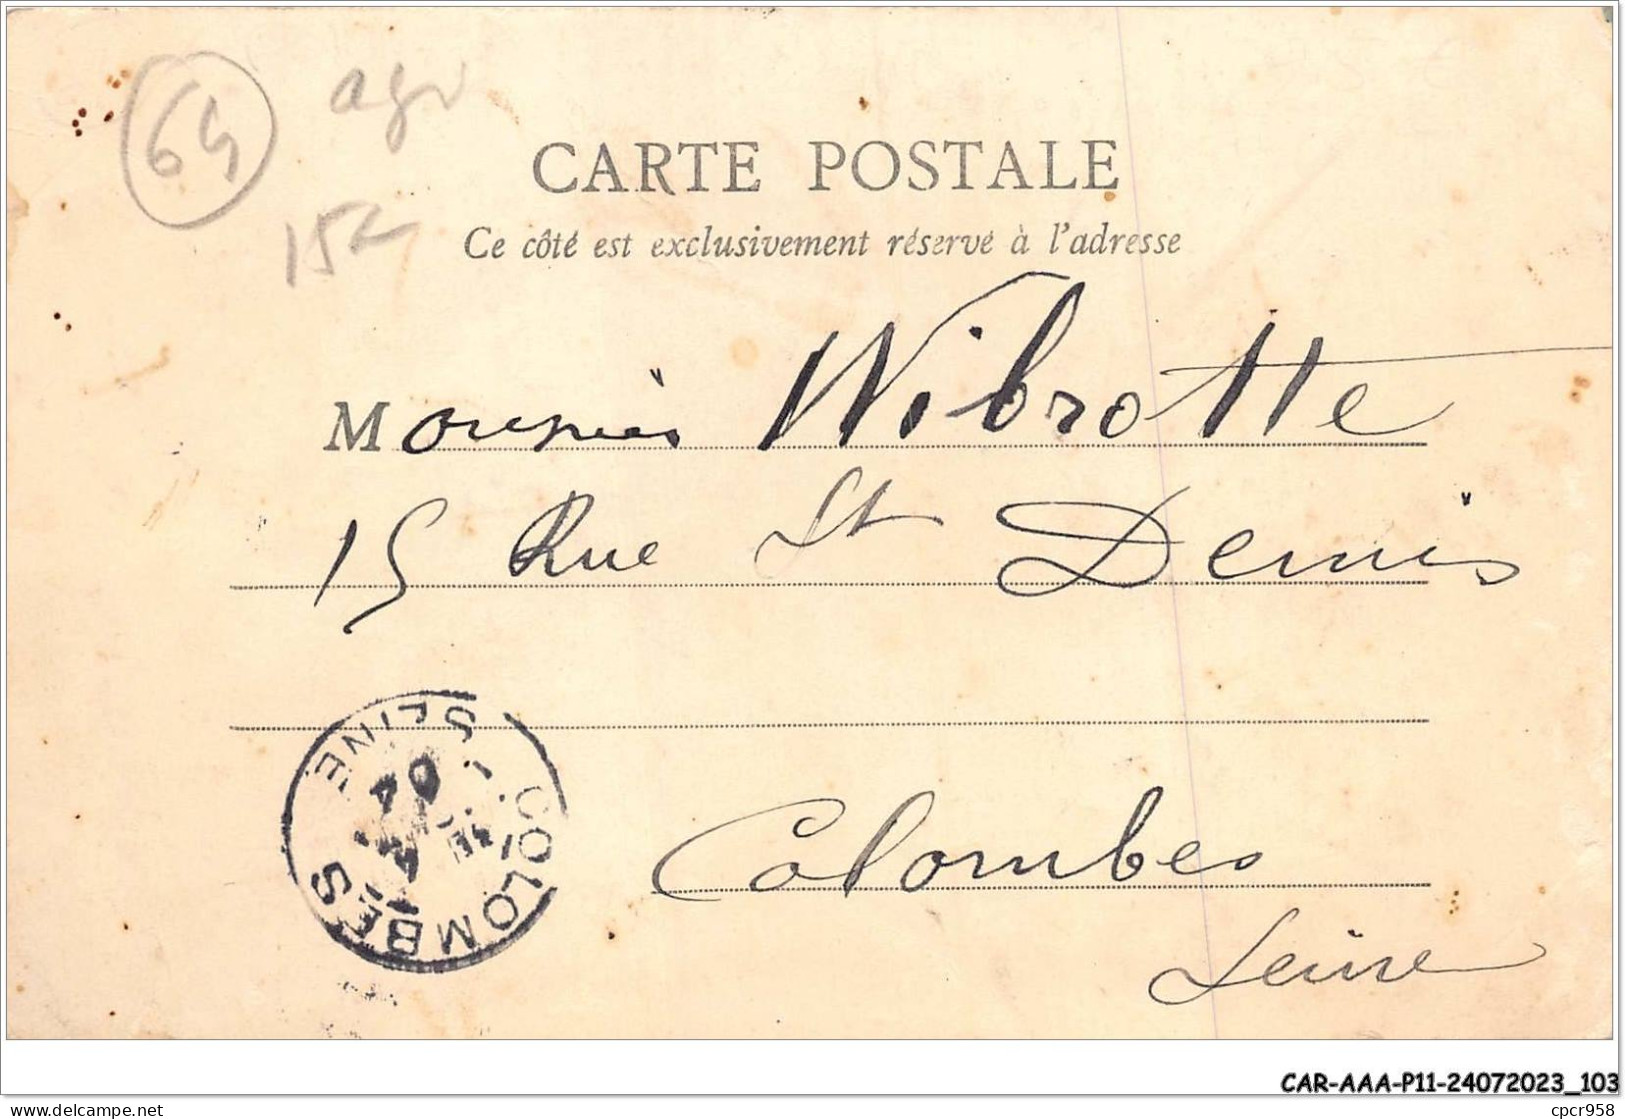 64
agr
15
CARTE POSTALE
Ce côté est exclusivement réservé à l'adresse
Monsieur Wibrotte
15 Rue St Denis
Colombes
Seine
COLOMBES
SEINE
CAR-AAA-P11-24072023_103
cpcr958